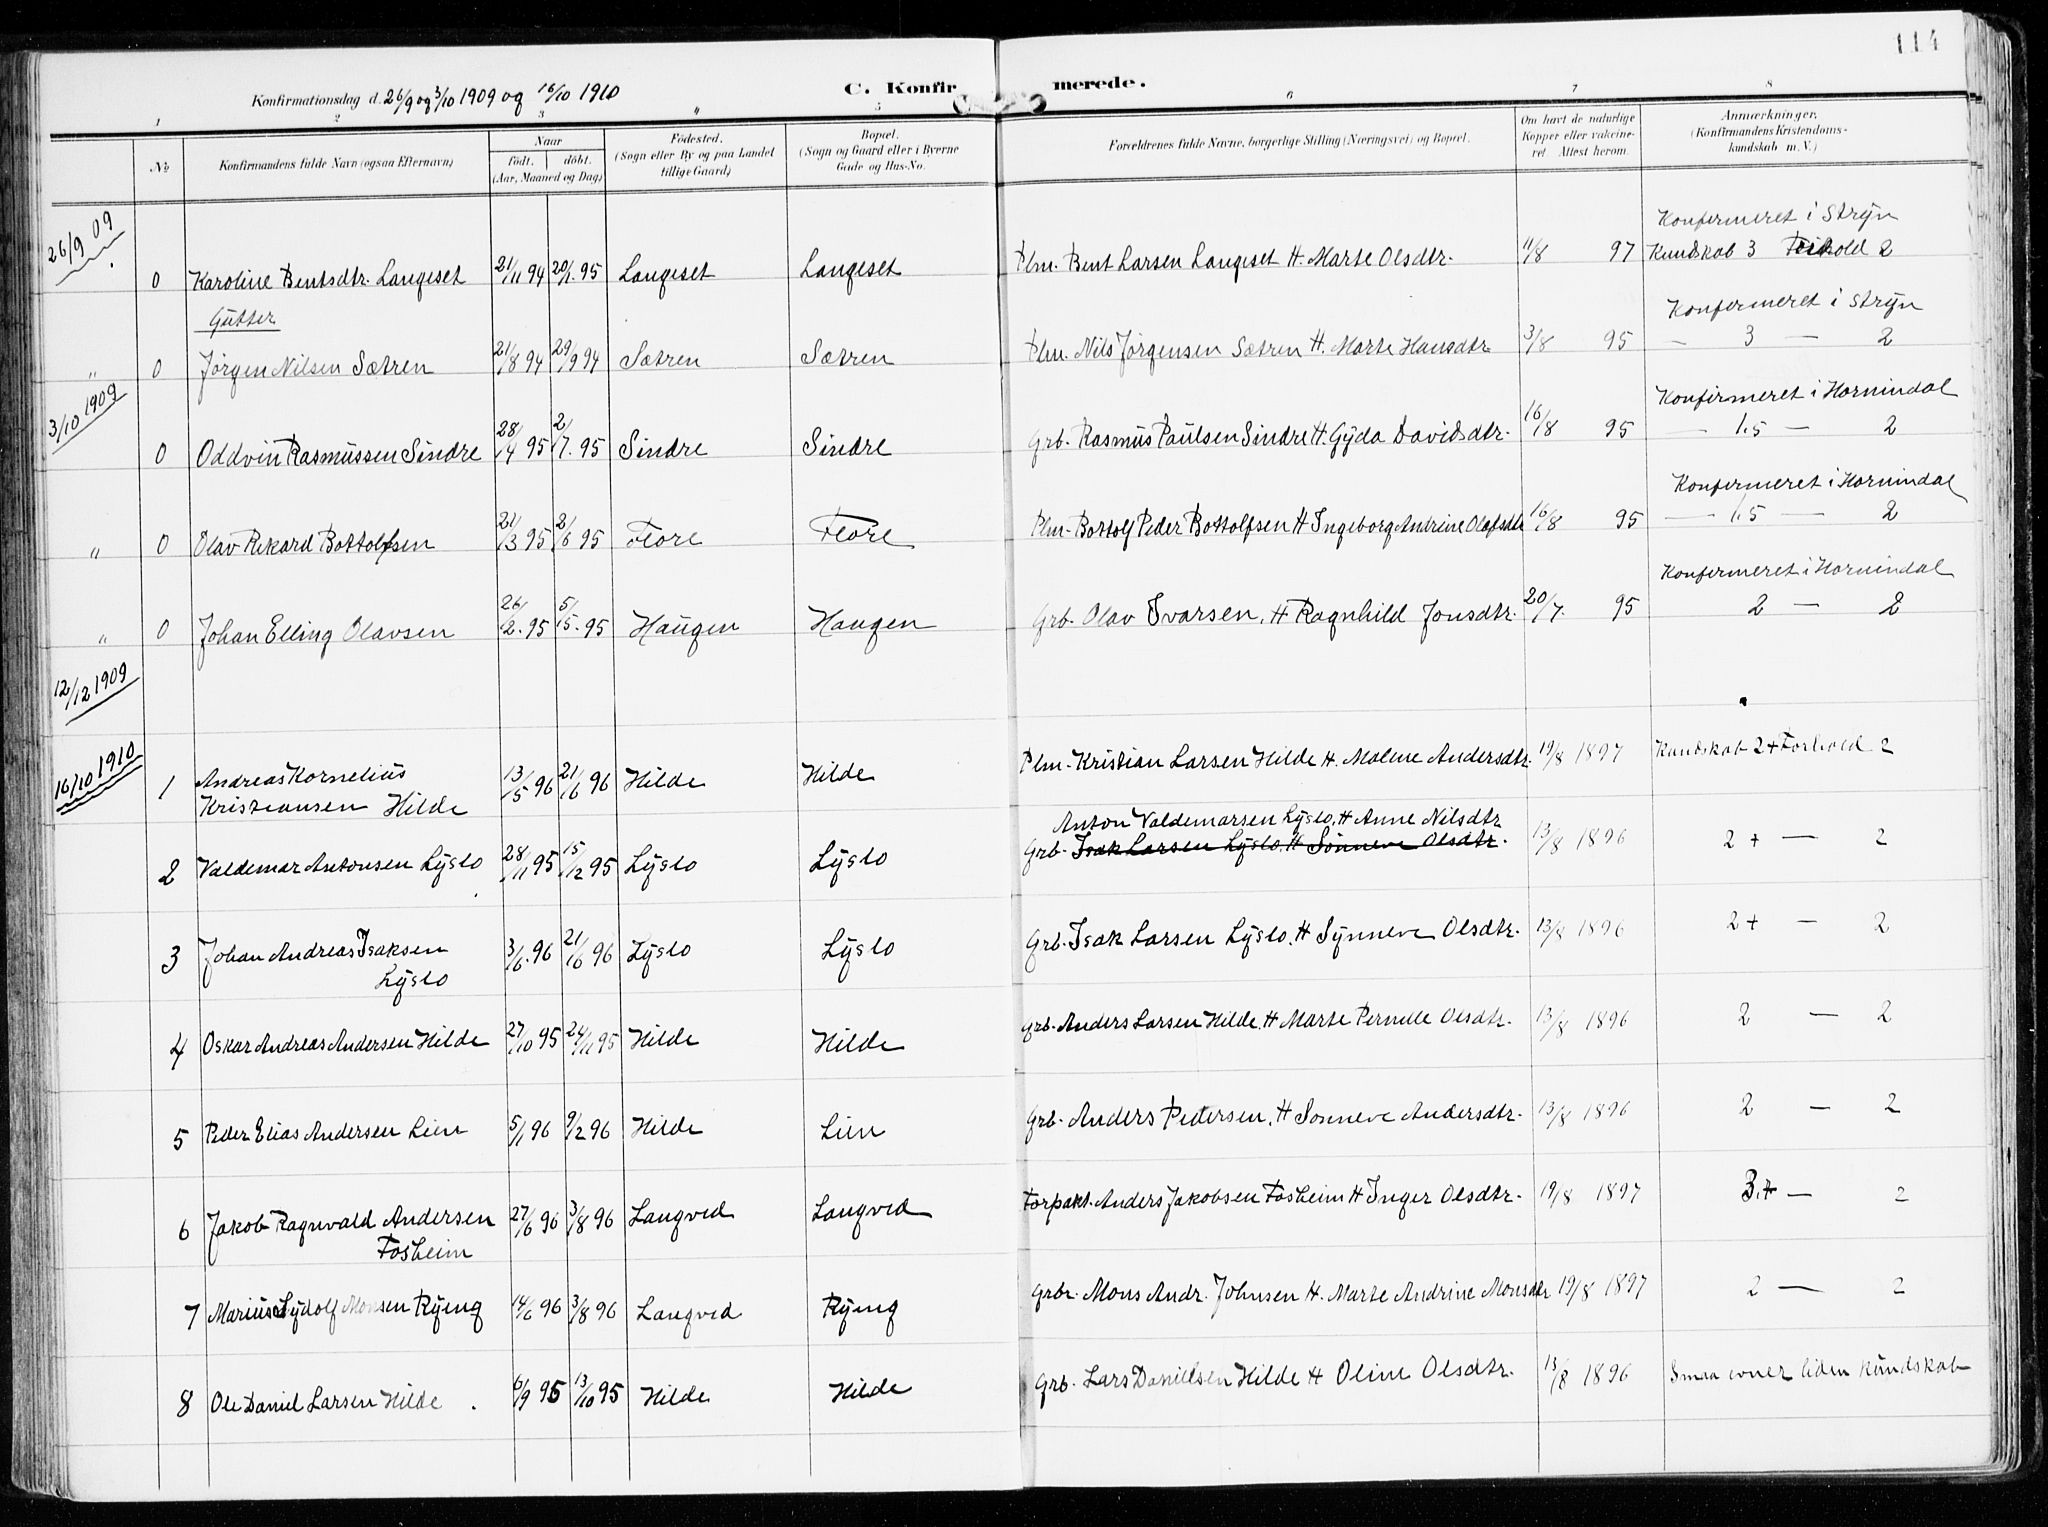 114
Konfirmationsdag d. 26/9 og 3/10 1909 og 16/10 1910 C. Konfirmerede.
1 2 3 " 5 6 7 8
No
Konfirmandens fulde Navn (ogsaa Efternavn)
Naar
født. døbt.
(Aar, Maaned og Dag)
Fødested.
(Sogn eller By og paa Landet
tillige Gaard)
Bopæl.
(Sogn og Gaard eller i Byerne
Gade og Hus-No.
Forældrenes fulde Navne, borgerlige Stilling (Næringsvei) og Bopæl.
Om havt de naturlige
Kopper eller vakcine-
ret. Attest herom.
Anmærkninger.
(Konfirmandens Kristendoms-
kundskab m. V.)
26/9 09
Konfermeret i Stryn
0 Karoline Bentsdtr. Langeset 21/11 94 20/1. 95 Langeset Langeset Plm. Bent Larsen Langeset H. Marte Olsdtr. 11/8 97 Kundskab 3 Forhold 2
Gutter
Konfermeret i Stryn
" 0 Jørgen Nilsen Sætren 21/8 94 29/9 94 Sætren Sætren Plm. Nils Jørgensen Sætren H. Marte Hansdtr 3/8 95 — 3 — 2
3/10 1909
Konfirmeret i Hornindal
0 Oddvin Rasmussen Sindre 28/4 95 2/7. 95 Sindre Sindre Grb. Rasmus Paulsen Sindre H. Gyda Davidsdtr. 16/8 95 — 1.5 — 2
Konfermeret i Hornindal
" 0 Olav Rikard Bottolfsen 21/3 95 2/6 95 Flore Flore Plm. Bottolf Peder Bottolfsen H Ingeborg Andrine Olafsdtr 16/8 95 — 1.5 — 2
Konfermeret i Hornindal
" 0 Johan Elling Olavsen 26/2. 95 5/5. 95 Haugen Haugen Grb. Olav Ivarsen, H Ragnhild Jonsdtr. 20/7. 95 2 — 2
12/12 1909
16/10 1910
1 Andreas Kornelius
Kristiansen Hilde 13/5 96 21/6 96 Hilde Hilde Plm. Kristian Larsen Hilde H. Malene Andersdtr. 19/8 1897 Kundskab 2+ Forhold 2
Anton Valdemarsen Lyslo, H Anne Nilsdtr
2 Valdemar Antonsen Lyslo 28/11 95 15/12 95 Lyslo Lyslo Grb. Isak Larsen Lyslo, H Sønneve Olsdtr. 13/8 1896 2+ — 2
3 Johan Andreas Isaksen
Lyslo 3/6. 96 21/6 96 Lyslo Lyslo Grb. Isak Larsen Lyslo, H Synneve Olsdtr. 13/8 1896 2+ — 2
4 Oskar Andreas Andersen Hilde 27/10 95 24/11 95 Hilde Hilde Grb. Anders Larsen Hilde, H Marte Pernille Olsdtr. 13/8 1896 2 — 2
5 Peder Elias Andersen Lien 5/1 96 9/2 96 Hilde Lien Grb. Anders Pedersen, H Sønneve Andersdtr. 13/8 1896 2 — 2
6 Jakob Ragnvald Andersen
Fosheim 27/6 96 3/8 96 Langved Langved Forpakt. Anders Jakobsen Fosheim H Inger Olsdtr. 19/8 1897 3.+ — 2
7 Marius Lydolf Monsen Ryeng 14/6 96 3/8 96 Langved Ryeng Grbr. Mons Andr. Johnsen H. Marte Andrine Monsdtr 19/8 1897 2 — 2
8 Ole Daniel Larsen Hilde 6/9 95 13/10 95 Hilde Hilde Grb. Lars Danielsen Hilde H Oline Olsdtr. 13/8 1896 Smaa evner liden Kundskab